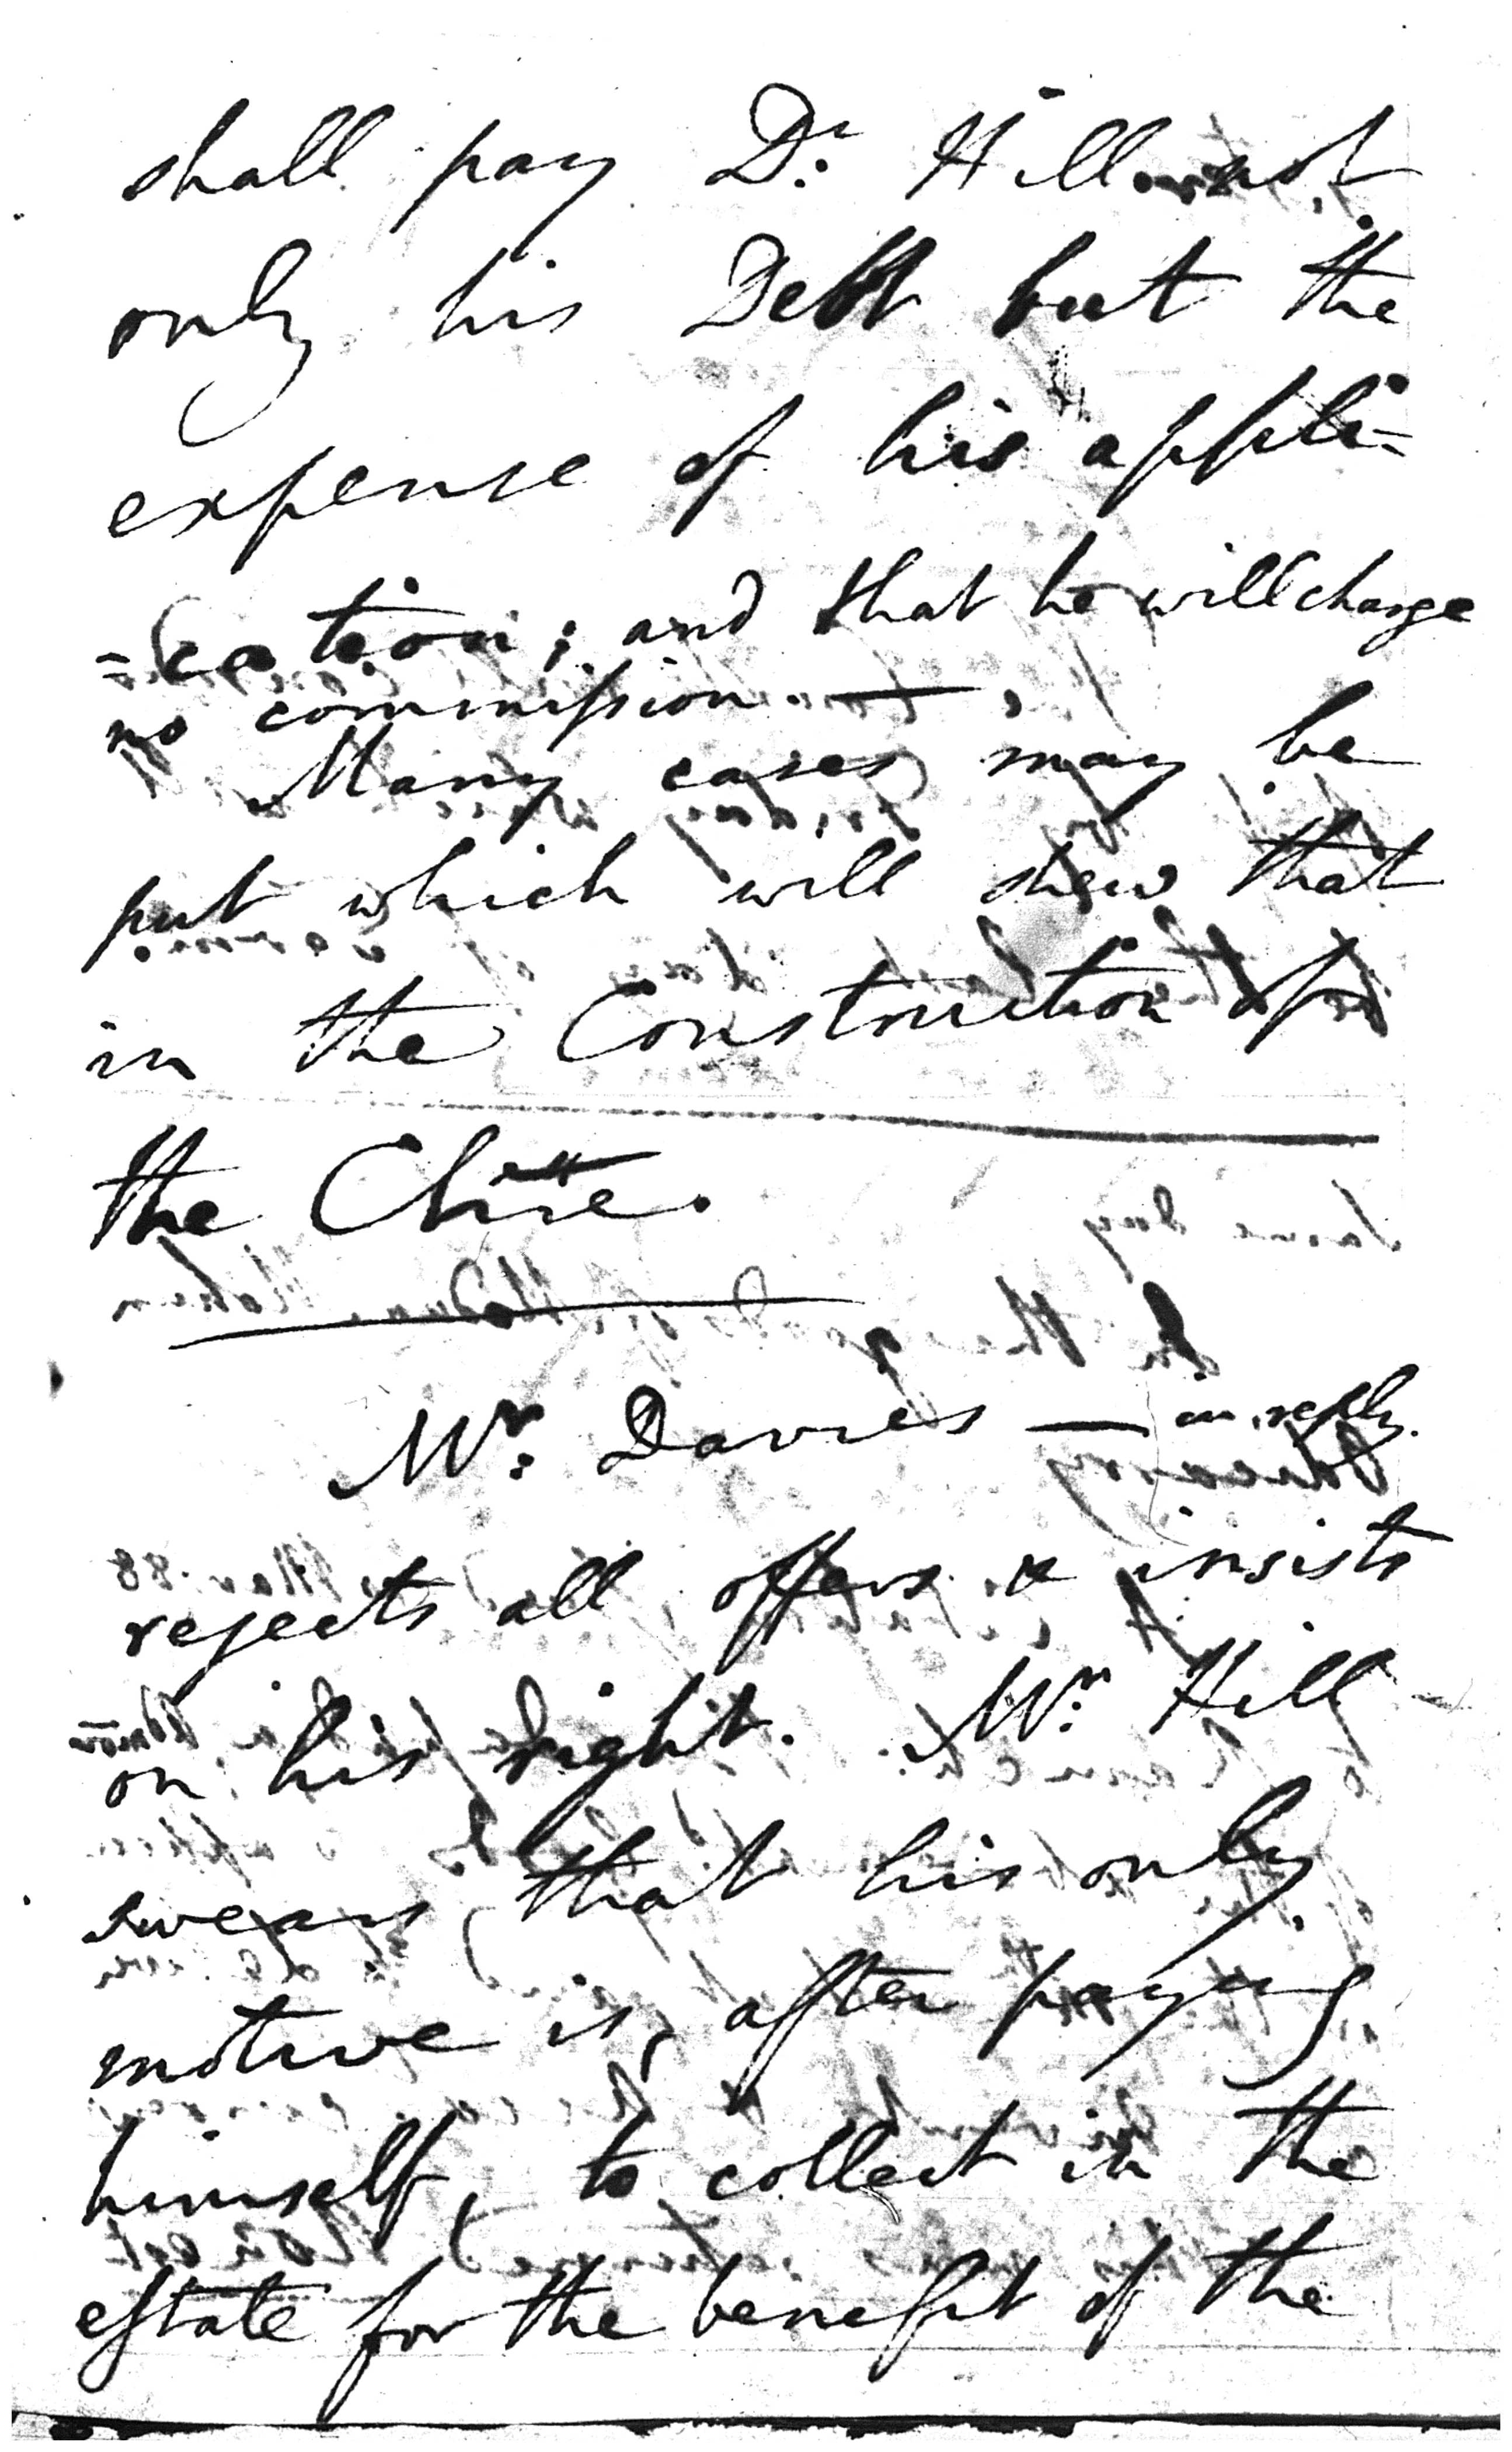 shall pay Dr: Hill not
only his Debt but the
expense of his appli=
=cation; and that he will charge
no commission. —
Many cases may be
put which will shew that
in the Construction of
the
Mr: Davies — in reply.
rejects all offers & insists
on his right. Mr: Hill
swears that his only
motive is, after paying
himself, to collect in the
estate for the benefit of the